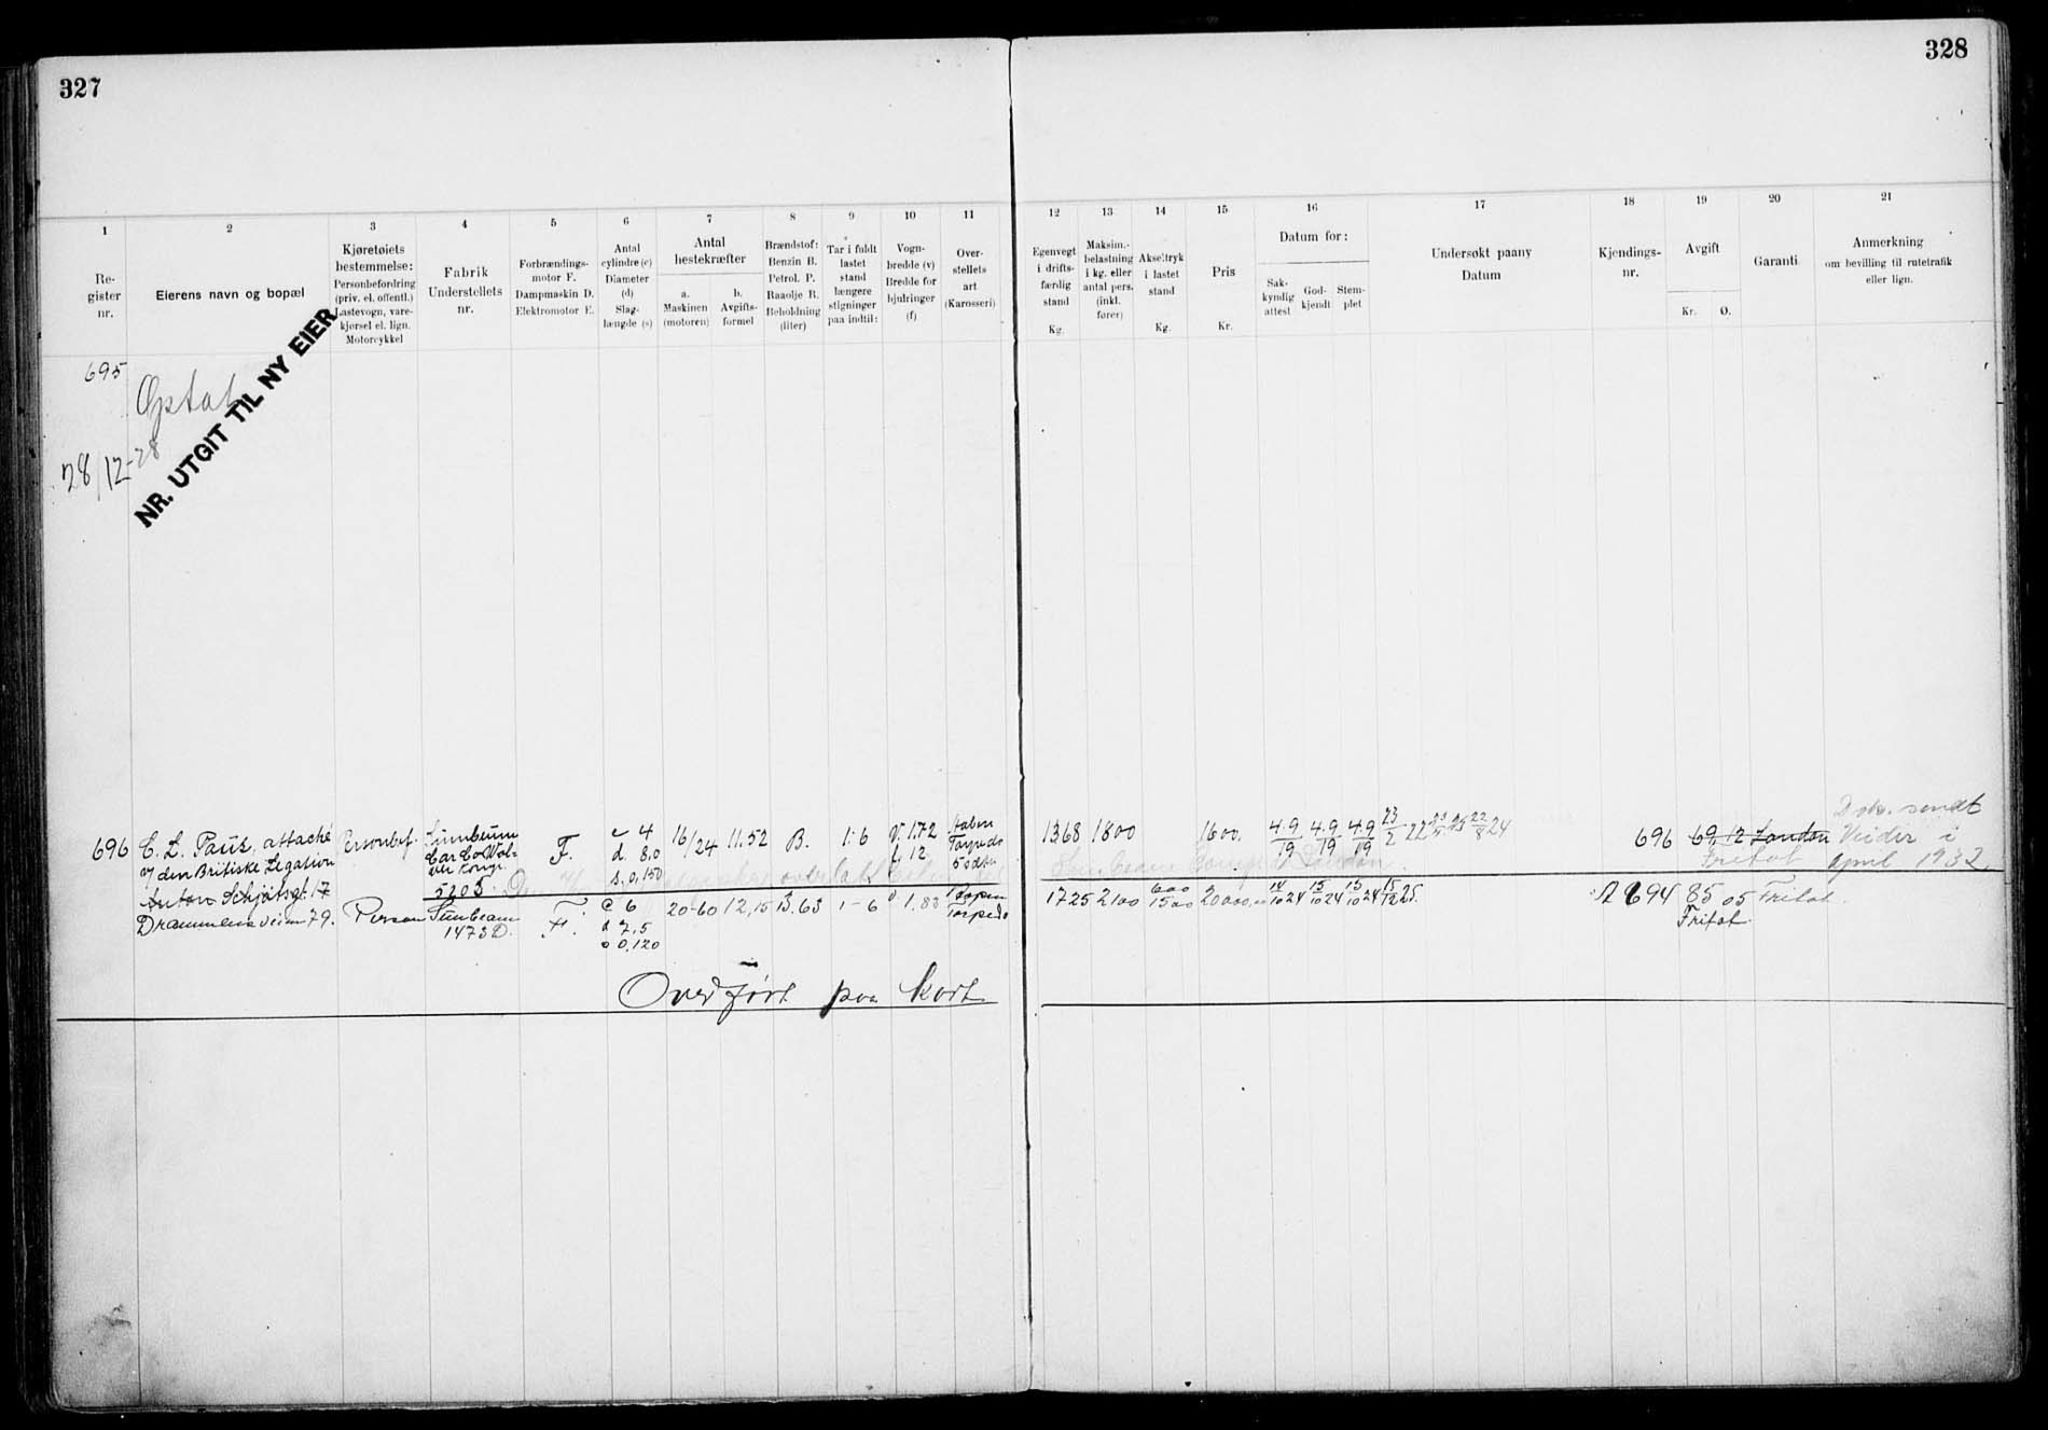 327
1
2
3
4
5
6
7
8
9
10
11
Re-
gister
nr.
Eierens navn og bopæl
Kjøretøiets
bestemmelse:
Personbefordring
(priv. el. offentl.)
Lastevogn, vare-
kjørsel el. lign.
Motorcykkel
Fabrik
Understellets
nr.
Forbrændings-
motor F.
Dampmaskin D.
Elektromotor E.
Antal
cylindre (c)
Diameter
(d)
Slag-
længde (s)
Antal
hestekræfter
a.
Maskinen
(motoren)
b.
Avgifts-
formel
Brændstof:
Benzin B.
Petrol. P.
Raaolje R.
Beholdning
(liter)
Tar i fuldt
lastet
stand
længere
stigninger
paa indtil:
Vogn-
bredde (v)
Bredde for
hjulringer
(f)
Over-
stellets
art
(Karosseri)
695
Optat
28/12-28
NR. UTGIT TIL NY EIER
696 E. L. Paus, attaché Personbef. F. c 4 16/24 11.52 B. 1:6 V. 1.72
v/ den Britiske Legation d. 8,0 f. 12 Torpedo
Anton Schjøtsgt. 17 5205 s. 0,150
Drammensveien 79. Person Sunbeam F. c 6 20-60 12,15 B. 63 1-6 v 1.83 Torpedo
1473 D. d 7,5
s 0,120
Overført paa kort
328
12
13
14
15
16
17
18
19
20
21
Egenvegt
i drifts-
færdig
stand
Kg.
Maksim.-
belastning
i kg. eller
antal pers.
(inkl.
fører)
Akseltryk
i lastet
stand
Kg.
Pris
Kr.
Datum for:
Sak-
kyndig
attest
God-
kjendt
Stem-
plet
Undersøkt paany
Datum
Kjendings-
nr.
Avgift
Kr. Ø.
Garanti
Anmerkning
om bevilling til rutetrafik
eller lign.
Dok. sendt
1368 1800 1600. 4.9/19 4.9/19 4.9/19 23/2 22 22/8 24 696 69,12 London i
Fritat april 1932
1725 2100 600/1500 20000,00 14/10 24 15/10 24 15/10 24 15/12 25. A 694 85 05 Fritat.
Fritat